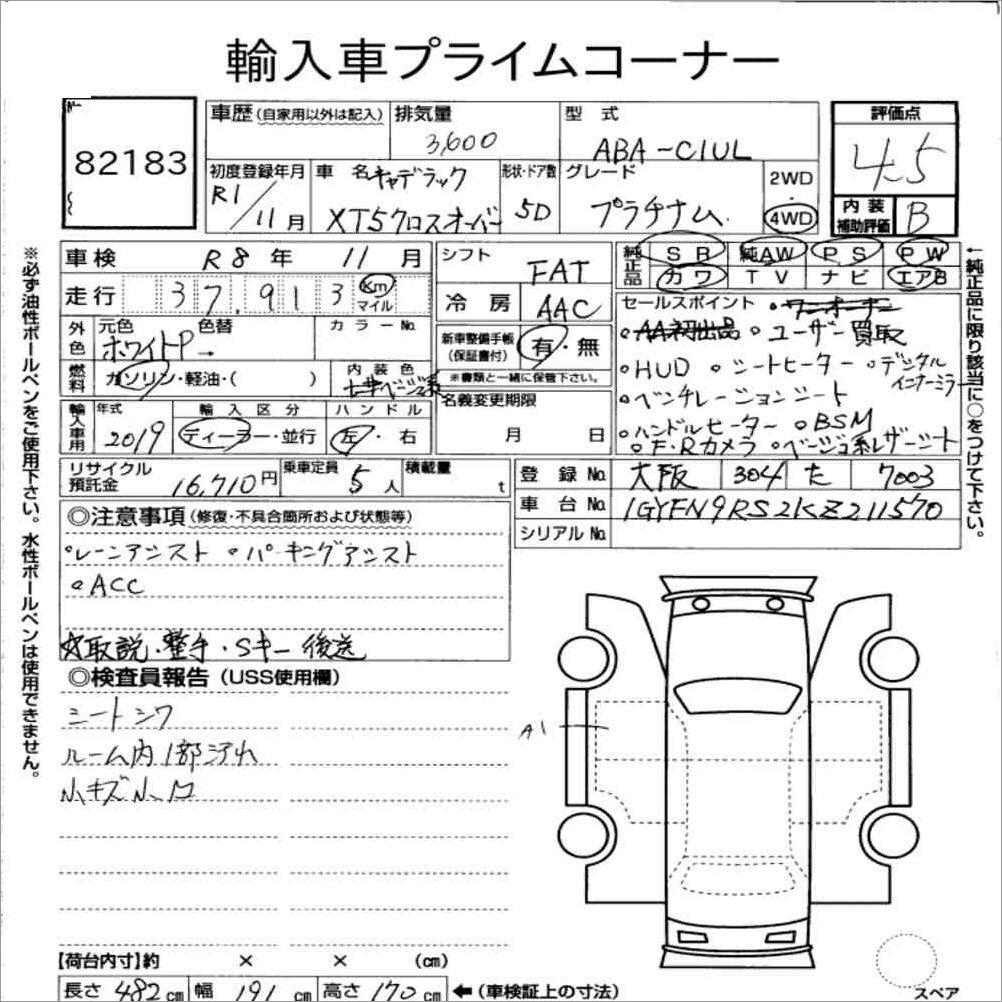 輸入車プライムコーナー
82183
車歴(自家用以外は記入)
排気量 3,600
型式 ABA-C1UL
評価点 4.5
初度登録年月 R1/11月
車名 キャデラック
XT5クロスオーバー
形状・ドア数 5D
グレード プラチナム
2WD
4WD
内装補助評価 B
※必ず油性ボールペンをご使用下さい。水性ボールペンは使用できません。
車検 R8年 11月
シフト FAT
純正品 SR 純AW PS PW
カワ TV ナビ エアB
←純正品に限り該当に○をつけて下さい。
走行 37,913 Km マイル
冷房 AAC
セールスポイント
外色 元色 ホワイトP 色替 →
カラーNo.
新車整備手帳(保証書付) 有・無
※書類と一緒に保管下さい。
ワンオーナー
AA初出品 ユーザー買取
HUD シートヒーター デジタルインナーミラー
ベンチレーションシート
ハンドルヒーター BSM
F・Rカメラ ベージュ系レザーシート
燃料 ガソリン・軽油・( )
内装色 ベージュ系
名義変更期限 月 日
輸入車用 年式 2019
輸入区分 ディーラー・並行
ハンドル 左・右
リサイクル預託金 16,710円
乗車定員 5人
積載量 t
登録No. 大阪 304 た 7003
車台No. 1GYFN9RS2KZ211570
シリアルNo.
◎注意事項(修復・不具合箇所および状態等)
レーンアシスト パーキングアシスト
ACC
☆取説・整手・Sキー後送
◎検査員報告(USS使用欄)
シートシワ
ルーム内1部汚れ
小キズ小凹
A1
【荷台内寸】約 × × (cm)
長さ 482cm 幅 191cm 高さ 170cm ←(車検証上の寸法)
スペア